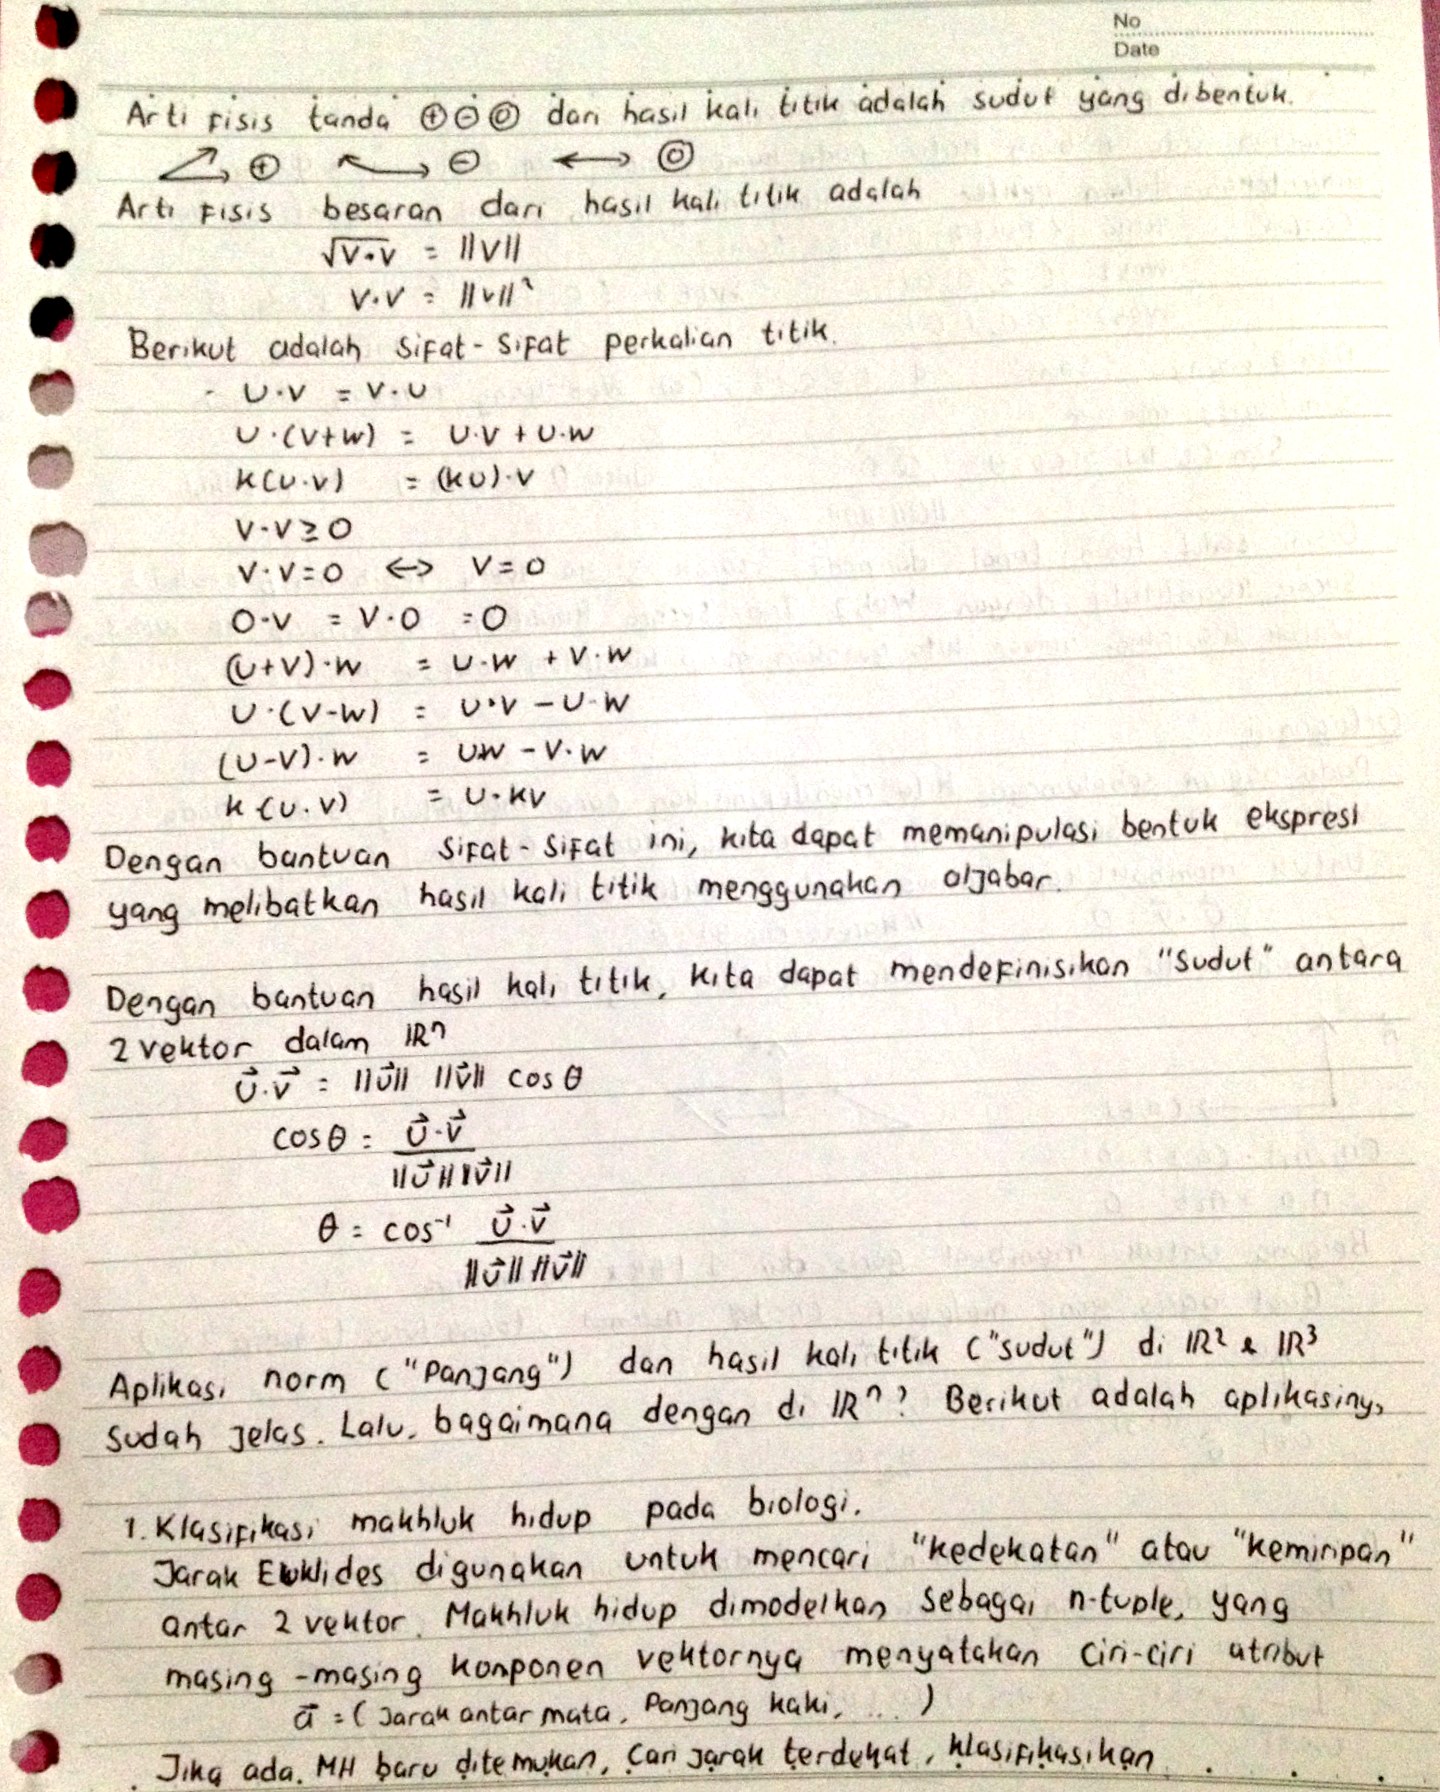 No
Date
Arti fisis tanda ⊕⊖⓪ dari hasil kali titik adalah sudut yang dibentuk.
⊕ ⊖ ⓪
Arti fisis besaran dari hasil kali titik adalah
√V·V = ||V||
V·V = ||V||²
Berikut adalah sifat-sifat perkalian titik.
- U·V = V·U
U·(V+W) = U·V + U·W
k(U·V) = (kU)·V
V·V ≥ 0
V·V=0 ↔ V=0
0·V = V·0 = 0
(U+V)·W = U·W + V·W
U·(V-W) = U·V - U·W
(U-V)·W = U·W - V·W
k·(U·V) = U·kV
Dengan bantuan sifat-sifat ini, kita dapat memanipulasi bentuk ekspresi
yang melibatkan hasil kali titik menggunakan aljabar.
Dengan bantuan hasil kali titik, kita dapat mendefinisikan "sudut" antara
2 vektor dalam ℝⁿ
U⃗·V⃗ = ||U⃗|| ||V⃗|| cos θ
cos θ = U⃗·V⃗
||U⃗|| ||V⃗||
θ = cos⁻¹ U⃗·V⃗
||U⃗|| ||V⃗||
Aplikasi norm ("Panjang") dan hasil kali titik ("sudut") di ℝ² & ℝ³
sudah jelas. Lalu, bagaimana dengan di ℝⁿ? Berikut adalah aplikasiny,
1. Klasifikasi makhluk hidup pada biologi.
Jarak Euklides digunakan untuk mencari "kedekatan" atau "kemiripan"
antar 2 vektor. Makhluk hidup dimodelkan sebagai n-tuple, yang
masing-masing komponen vektornya menyatakan ciri-ciri atribut
a⃗ = (Jarak antar mata, Panjang kaki, ...)
Jika ada MH baru ditemukan, Cari jarak terdekat, klasifikasikan